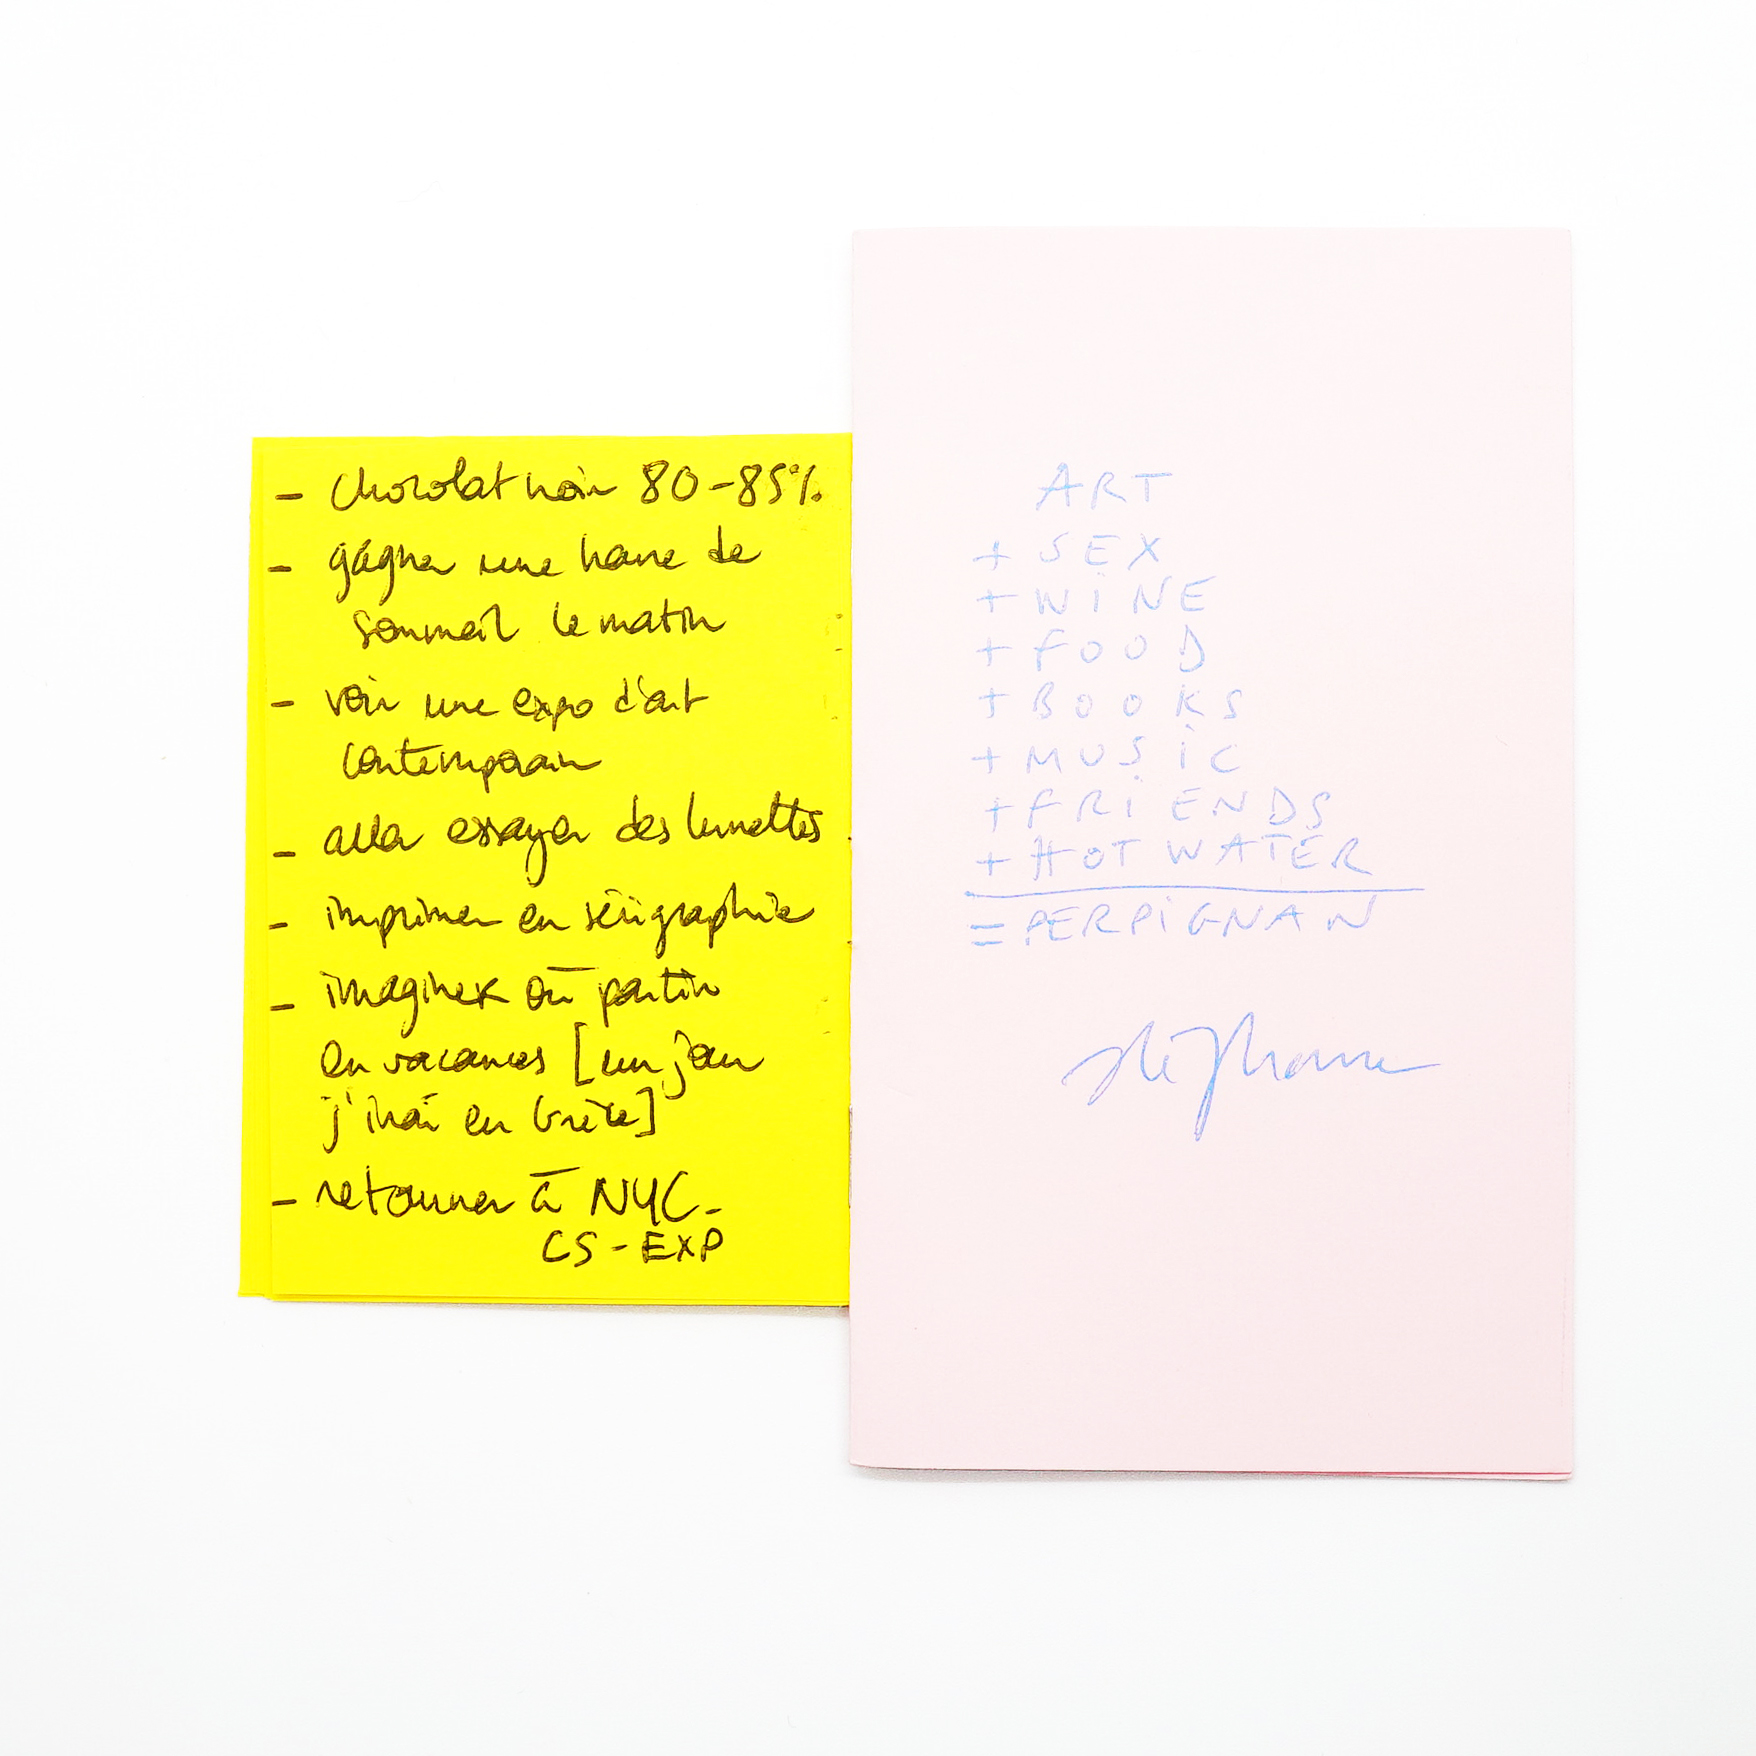 - chocolat noir 80-85%
- gagner une heure de
sommeil le matin
- voir une expo d'art
contemporain
- aller essayer des lunettes
- imprimer en sérigraphie
- imaginer où partir
en vacances [un jour
j'irai en Grèce]
- retourner à NYC-
CS-EXP
ART
+ SEX
+ WINE
+ FOOD
+ BOOKS
+ MUSIC
+ FRIENDS
+ HOT WATER
= PERPIGNAN
stéphane